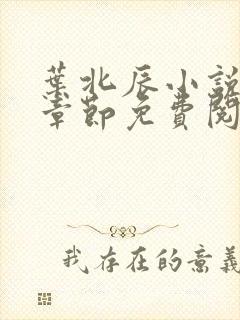 葉北辰小說
章節免費閱
我存在的意義